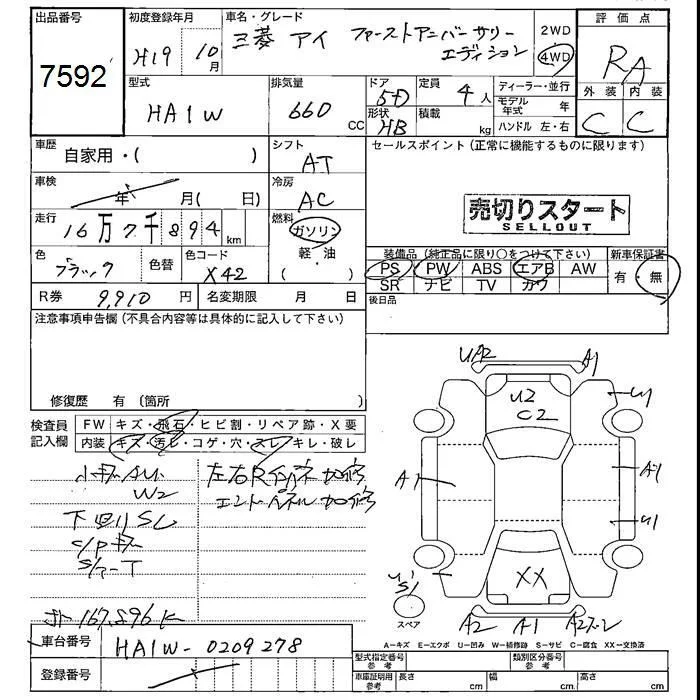 出品番号
7592
初度登録年月
H19 10月
車名・グレード
三菱 アイ ファーストアニバーサリー
エディション
2WD
4WD
評価点
RA
外装 内装
C C
型式
HA1W
排気量
660 CC
ドア
5D
形状
HB
定員
4人
積載
kg
ディーラー・並行
モデル年式 年
ハンドル 左・右
車歴
自家用・( )
シフト
AT
セールスポイント(正常に機能するものに限ります)
売切りスタート
SELLOUT
車検
年 月( 日)
冷房
AC
走行
16万7千894km
燃料
ガソリン
軽・油
( )
色
ブラック
色替
色コード
X42
装備品(純正品に限り○をつけて下さい)
新車保証書
PS PW ABS エアB AW
SR ナビ TV カワ
有 無
R券 9,910円
名変期限 月 日
後日品
注意事項申告欄(不具合内容等は具体的に記入して下さい)
修復歴 有(箇所 )
検査員
記入欄
FW キズ・飛石・ヒビ割・リペア跡・X要
内装 キズ・汚レ・コゲ・穴・スレ・キレ・破レ
小キズAU
W2
下回りSC
C/Pキズ
左右Rインナー加修
エンドパネル加修
メーター167,896K
車台番号
HA1W-0209278
登録番号
UA2 A1
U2
C2
U1
A1
A1
U1
U1
S1
XX
スペア
A2 A1 A2ズレ
A=キズ E=エクボ U=凹み W=補修跡 S=サビ C=腐食 XX=交換済
型式指定番号
参考
類別区分番号
参考
車庫証明用
参考
長さ cm
幅 cm
高さ cm